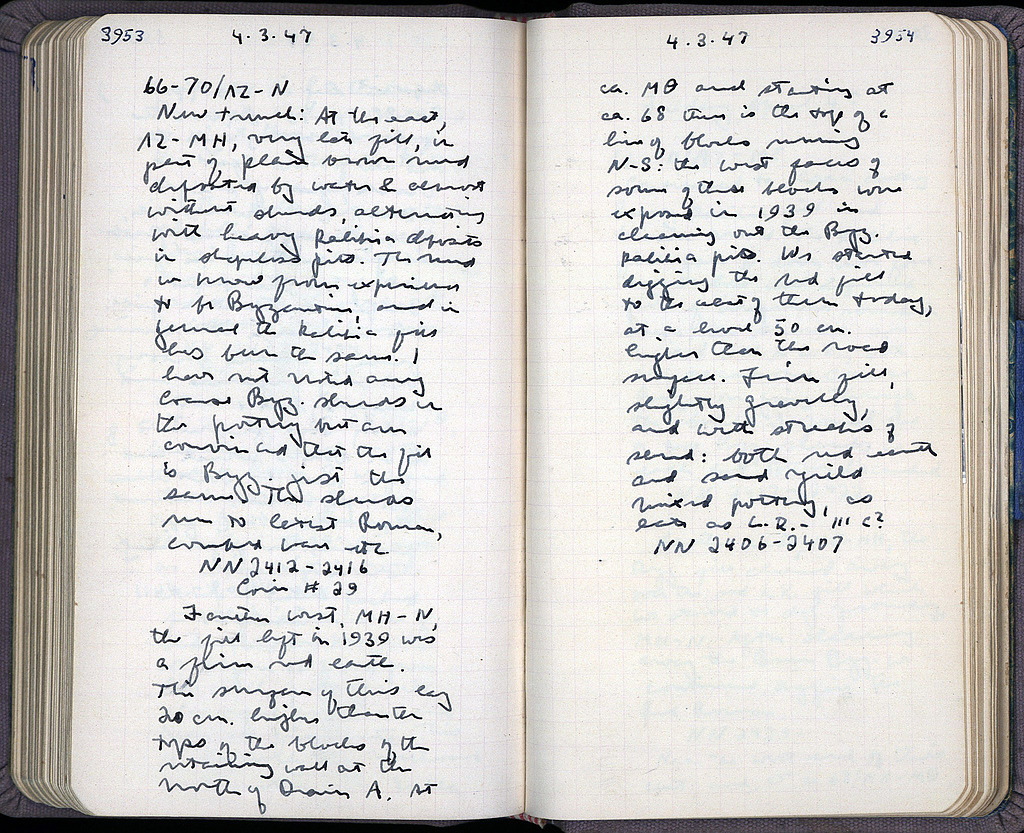 3953 4.3.47
66-70/ΛΖ-Ν
New trench: At the east,
ΛΖ-ΜΗ, very late fill, in
part of plain brown mud
deposited by water & almost
without sherds, alternating
with heavy Kalitsia deposits
in shapeless pits. The mud
we know from experience
to be Byzantine, and in
general the Kalitsia fills
has been the same. I
have not noted any
coarse Byz. sherds in
the pottery but am
convinced that the fill
is Byz. just the
same. The sherds
run to latest Roman,
combed ware etc
NN 2412-2416
Coin # 29
Farther west, ΜΗ-Ν,
the fill left in 1939 was
a firm red earth.
The surface of this lay
20 cm. higher than the
tops of the blocks of the
retaining wall at the
north of Drain A. At
4.3.47 3954
ca. ΜΘ and starting at
ca. 68 there is the top of a
line of blocks running
N-S: the west faces of
some of these blocks were
exposed in 1939 in
cleaning out the Byz.
Kalitsia pits. We started
digging the red fill
to the west of them today,
at a level 50 cm.
higher than the road
surface. Firm fill,
slightly gravelly,
and with streaks of
sand: both red earth
and sand yield
mixed pottery, as
late as L.R. - III c?
NN 2406-2407